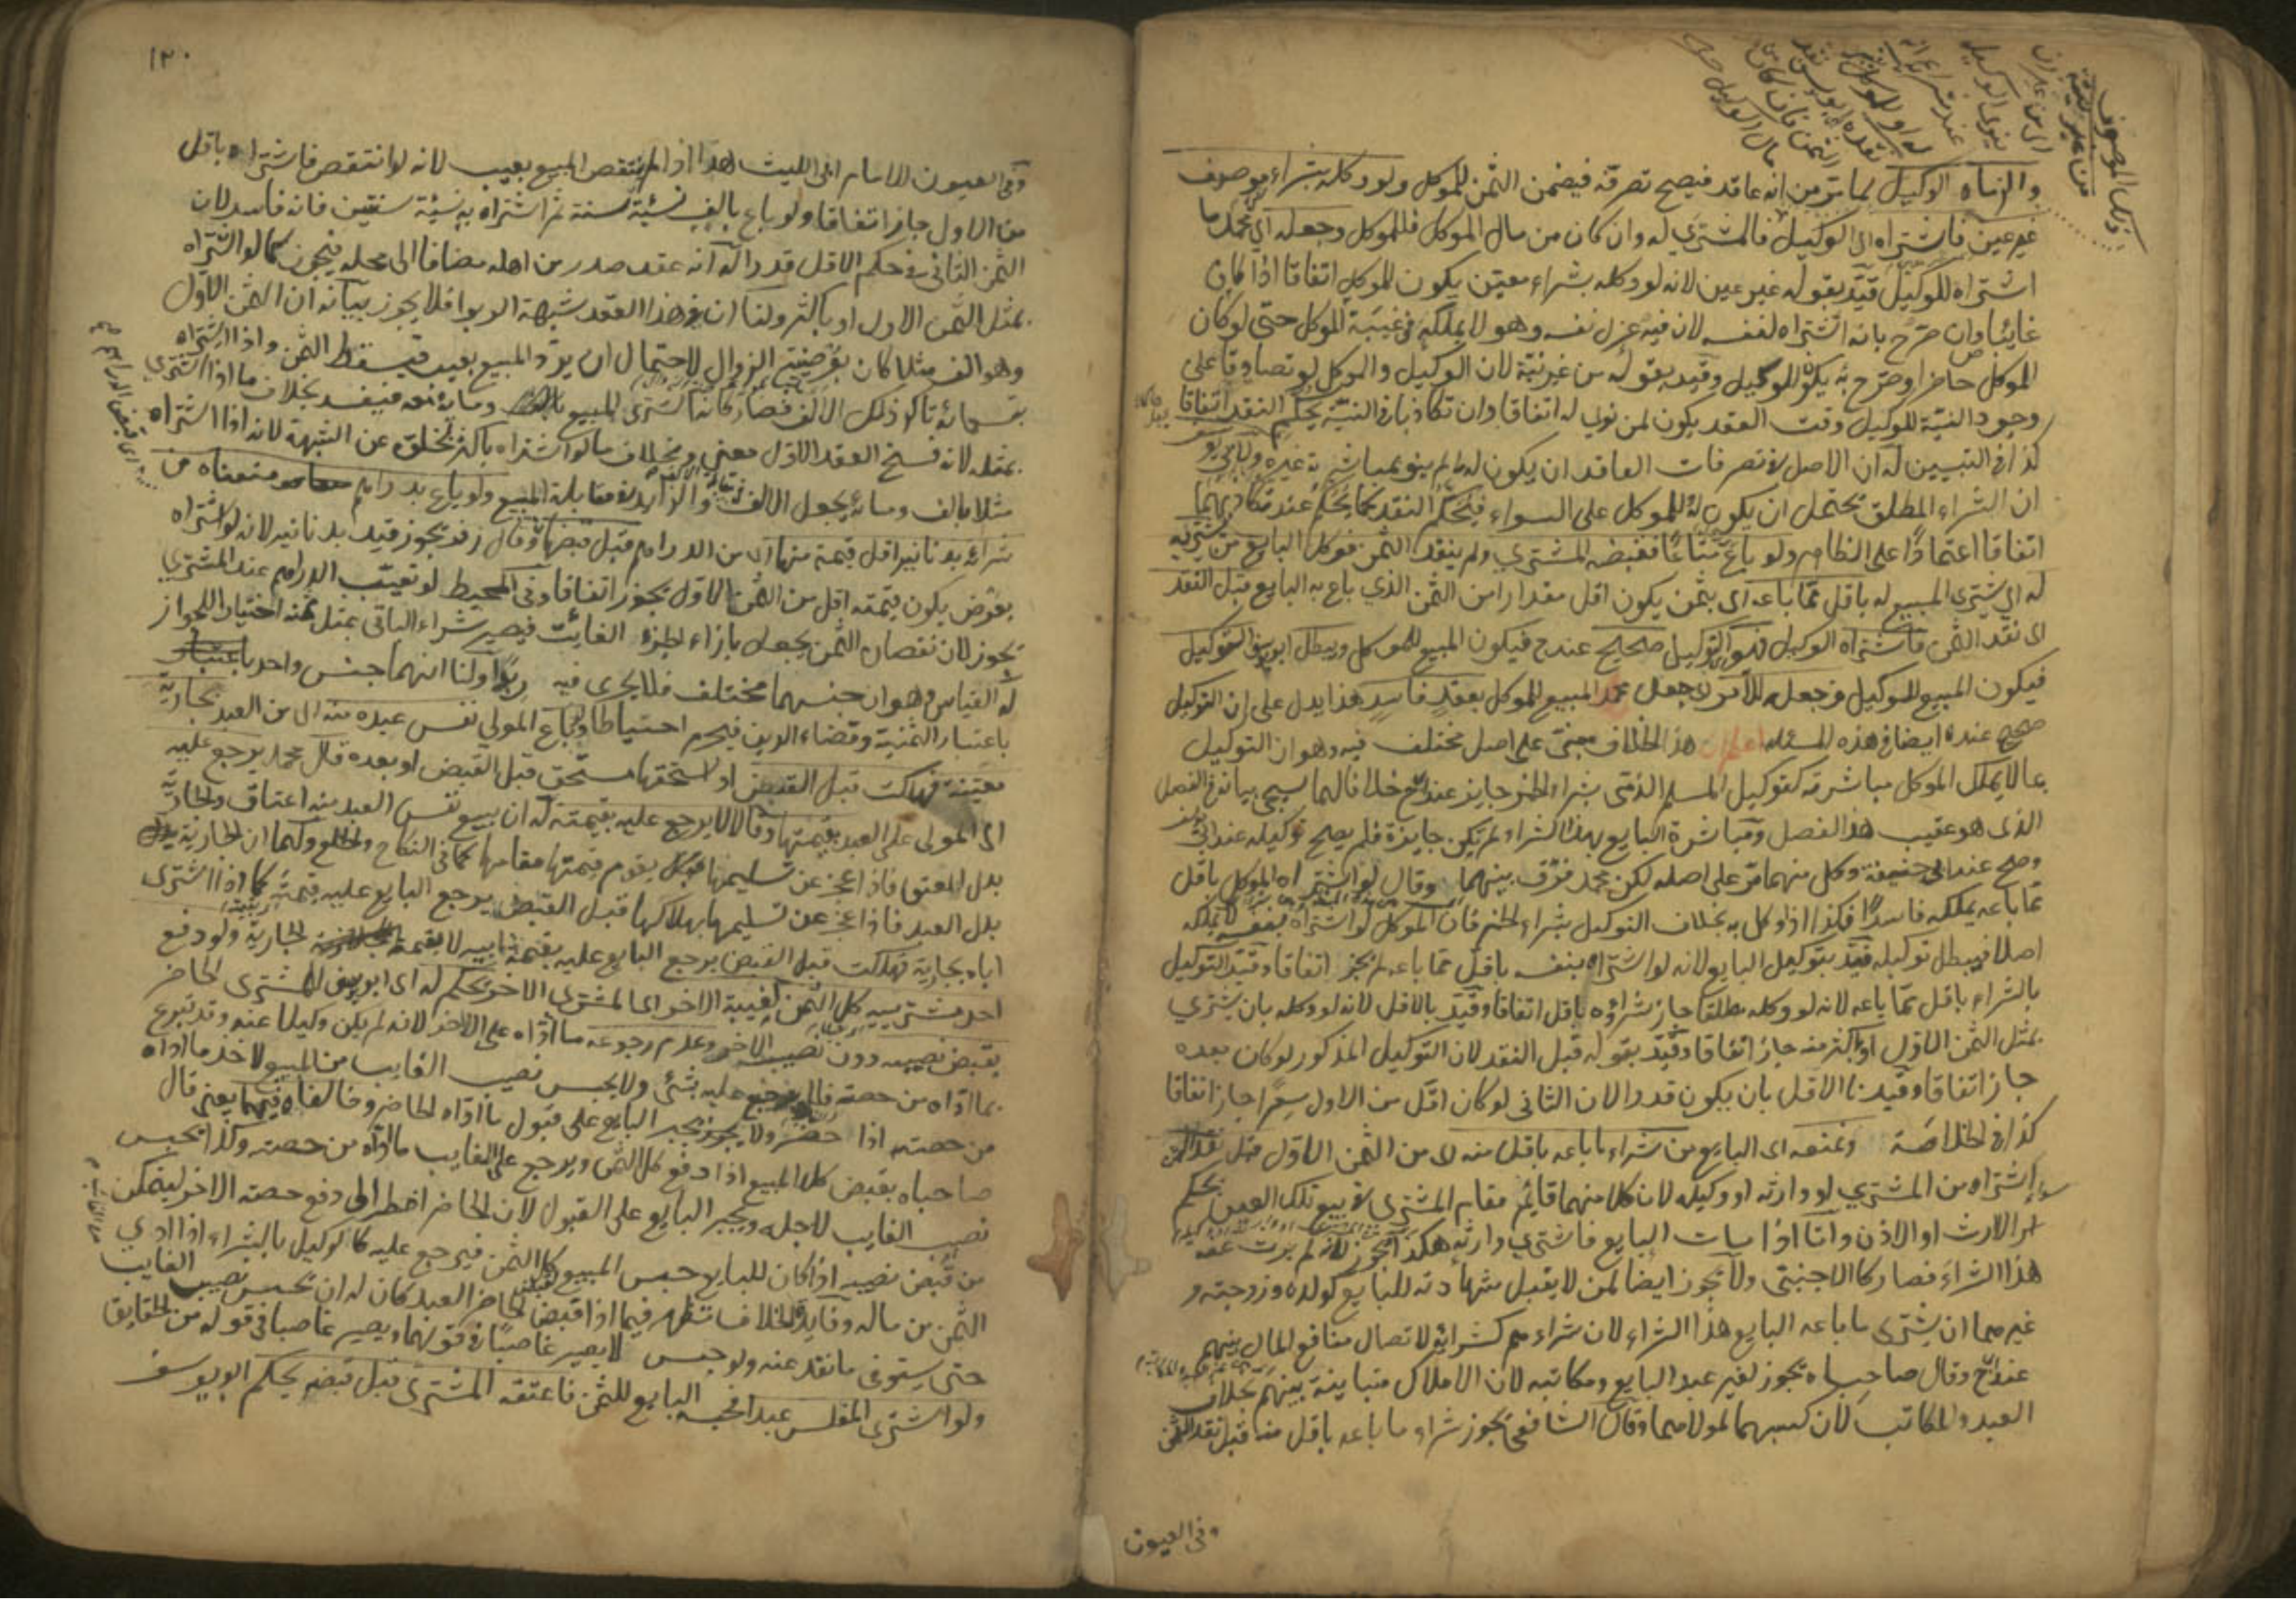 والزماه الوكيل لما مر من انه عاقد فيصح تصرفه فيضمن الثمن للموكل ولو وكله بشراء موصوف
غير عين فاشتراه الوكيل فالمشتري له وان كان من مال الموكل فللموكل وجعله اي محمد ما
اشتراه للوكيل قيد بقوله غير عين لانه لو وكله بشراء معين يكون للموكل اتفاقا اذا كان
غائبا وان صرح بانه اشتراه لنفسه لان فيه عزل نفسه وهو لا يملكه في غيبة الموكل حتى لو كان
الموكل حاضرا وصرح به يكون للوكيل وقيد بقوله من غير نية لان الوكيل والموكل لو تصادقا على
وجود النية للوكيل وقت العقد يكون لمن نوى له اتفاقا وان تكاذبا في النية يحكم النقد اتفاقا
كذا في التبيين له ان الاصل في تصرفات العاقد ان يكون له ما لم ينو بمباشرته غيره ولابي يوسف
ان الشراء المطلق يحتمل ان يكون له وللموكل على السواء فيحكم النقد كما يحكم عند تكاذبهما
اتفاقا اعتمادا على الظاهر ولو باع متاعا فقبضه المشتري ولم ينقد الثمن فوكل البايع من يشتريه
له اي يشتري المبيع له باقل مما باعه اي بثمن يكون اقل مقدارا من الثمن الذي باع به البايع قبل النقد
اي نقد الثمن فاشتراه الوكيل فهو اي التوكيل صحيح عند ح فيكون المبيع للموكل ويبطل ابو يوسف التوكيل
فيكون المبيع للوكيل وجعله للآمر اي جعل محمد المبيع للموكل بعقد فاسد هذا يدل على ان التوكيل
صحيح عنده ايضا في هذه المسئلة اعلم ان هذا الخلاف مبني على اصل مختلف فيه وهو ان التوكيل
بما لا يملك الموكل مباشرته كتوكيل المسلم الذمي بشراء الخمر جايز عند ح خلافا لهما سيجي بيانه في الفصل
الذي هو عقيب هذا الفصل ومباشرة البايع بهذا الشراء لم تكن جايزة فلم يصح توكيله عند ابي يوسف
وصح عند ابي حنيفة وكل منهما مر على اصله لكن محمد فرق بينهما وقال لو اشتراه الموكل باقل
مما باعه يملكه فاسدا فكذا اذا وكل به بخلاف التوكيل بشراء الخمر فان الموكل لو اشتراه بنفسه لا يملكه
اصلا فيبطل توكيله قيد بتوكيل البايع لانه لو اشتراه بنفسه باقل مما باعه لم يجز اتفاقا وقيد التوكيل
بالشراء باقل مما باعه لانه لو وكله مطلقا جاز شراؤه باقل اتفاقا وقيد بالاقل لانه لو وكله بان يشتري
بمثل الثمن الاول او اكثر منه جاز اتفاقا وقيد بقوله قبل النقد لان التوكيل المذكور لو كان بعده
جاز اتفاقا وقيدنا الاقل بان يكون قدرا لان الثاني لو كان اقل من الاول سعرا جاز اتفاقا
كذا في الخلاصة ونمنعه اي البايع من شراء ما باعه باقل منه اي من الثمن الاول قبل نقد الثمن
اشتراه من المشتري او وارثه او وكيله لان كلا منهما قائم مقام المشتري في بيع تلك العين بحكم
الارث او الاذن واما اذا مات البايع فاشترى وارثه هكذا يجوز لانه لم يرث عنه
هذا الشراء فصار كالاجنبي ولا يجوز ايضا لمن لا يقبل شهادته للبايع كولده وزوجته و
غيرهما ان يشتري ما باعه البايع هذا الشراء لان شراءهم كشرائه لاتصال منافع المال بينهم
عند ح وقال صاحباه يجوز لغير عبد البايع ومكاتبه لان الاملاك متباينة بينهم بخلاف
العبد والمكاتب لان كسبهما لمولاهما وقال الشافعي يجوز شراء ما باعه باقل منه قبل نقد الثمن
وفي العيون
١٢٠
وفي العيون للامام ابي الليث هذا اذا لم ينتقص المبيع بعيب لانه لو انتقص فاشتراه باقل
من الاول جاز اتفاقا ولو باع بالف نسيئة سنة ثم اشتراه به نسيئة سنتين فانه فاسد لان
الثمن الثاني في حكم الاقل قدرا له انه عقد صدر من اهله مضافا الى محله فيجوز كما لو اشتراه
بمثل الثمن الاول او باكثر ولنا ان في هذا العقد شبهة الربوا فلا يجوز بيانه ان الثمن الاول
وهو الف مثلا كان بعرضية الزوال لاحتمال ان يرد المبيع بعيب فيسقط الثمن واذا اشتراه
بتسعمائة تاكد ذلك الالف فصار كانه اشترى المبيع ومائة فيفسد بخلاف ما اذا اشترى
بمثله لانه فسخ العقد الاول معنى وبخلاف ما لو اشتراه باكثر لخلوه عن الشبهة لانه اذا اشتراه
مثلا بالف ومائة يجعل الالف والزايد في مقابلة المبيع ولو باع بدراهم منعناه من
شرائه بدنانير اقل قيمة منها اي من الدراهم قبل قبضها وقال زفر يجوز قيد بدنانير لانه لو اشتراه
بعرض يكون قيمته اقل من الثمن الاول يجوز اتفاقا وفي المحيط لو تعيب الدراهم عند المشتري
يجوز لان نقصان الثمن يجعل بازاء الجزء الفائت فيصير شراء الباقي بمثل ثمنه اختيارا للجواز
له القياس وهو ان جنسهما مختلف فلا يجري فيه ربوا ولنا انهما جنس واحد
باعتبار الثمنية وقضاء الدين فيحرم احتياطا ولو باع المولى نفس عبده منه اي من العبد بجارية
معينة فهلكت قبل القبض او استحقها مستحق قبل القبض او بعده قال محمد يرجع عليه
اي المولى على العبد بقيمتها وقالا لا يرجع عليه بقيمته له ان بيع نفس العبد منه اعتاق والجارية
بدل العتق فاذا عجز عن تسليمها يقوم قيمتها مقامها كما في النكاح والخلع ولهما ان الجارية
بدل العبد فاذا عجز عن تسليمها بهلاكها قبل القبض يرجع البايع عليه بقيمته كما اذا اشترى
اباه بجارية فهلكت قبل القبض يرجع البايع عليه بقيمة ابيه لا بقيمة الجارية ولو دفع
احد مشتريين كل الثمن لغيبة الاخر اي المشتري الاخر يحكم له اي ابو يوسف للمشتري الحاضر
بقبض نصيبه دون نصيب الاخر وعدم رجوعه ما اداه على الاخر لانه لم يكن وكيلا عنه وقد تبرع
بما اداه من حصته فلا يرجع عليه بشئ ولا يحبس نصيب الغايب من المبيع لاخذ ما اداه
من حصته اذا حضر ولا يجبر البايع على قبول ما اداه الحاضر وخالفاه فيهما يعني قال
صاحباه يقبض كل المبيع اذا دفع كل الثمن ويرجع على الغايب ما اداه من حصته وكذا يحبس
نصيب الغايب لاجله ويجبر البايع على القبول لان الحاضر اضطر الى دفع حصته الاخر ليتمكن
من قبض نصيبه اذا كان للبايع حبس المبيع لكل الثمن فيرجع عليه كالوكيل بالشراء اذا ادى
الثمن من ماله وفايدة الخلاف تظهر فيما اذا قبض الحاضر العبد كان له ان يحبس نصيب الغايب
حتى يستوفي ما نقد عنه ولو حبس لا يصير غاصبا في قولهما ويصير غاصبا في قوله من الحقايق
ولو اشترى المفلس عبدا فحبسه البايع للثمن فاعتقه المشتري قبل قبضه يحكم ابو يوسف